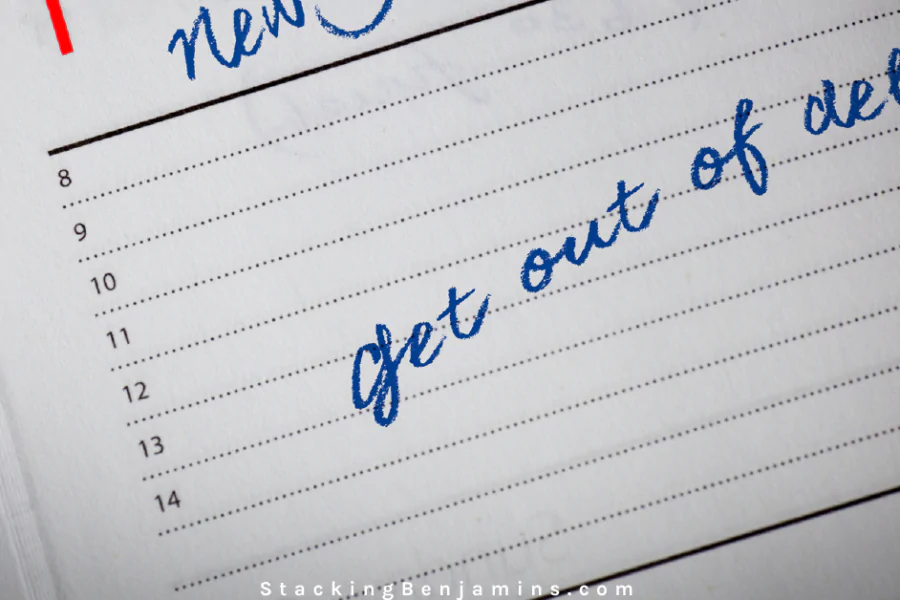 New
8
9
10
11
12
13
14
get out of deb
StackingBenjamins.com